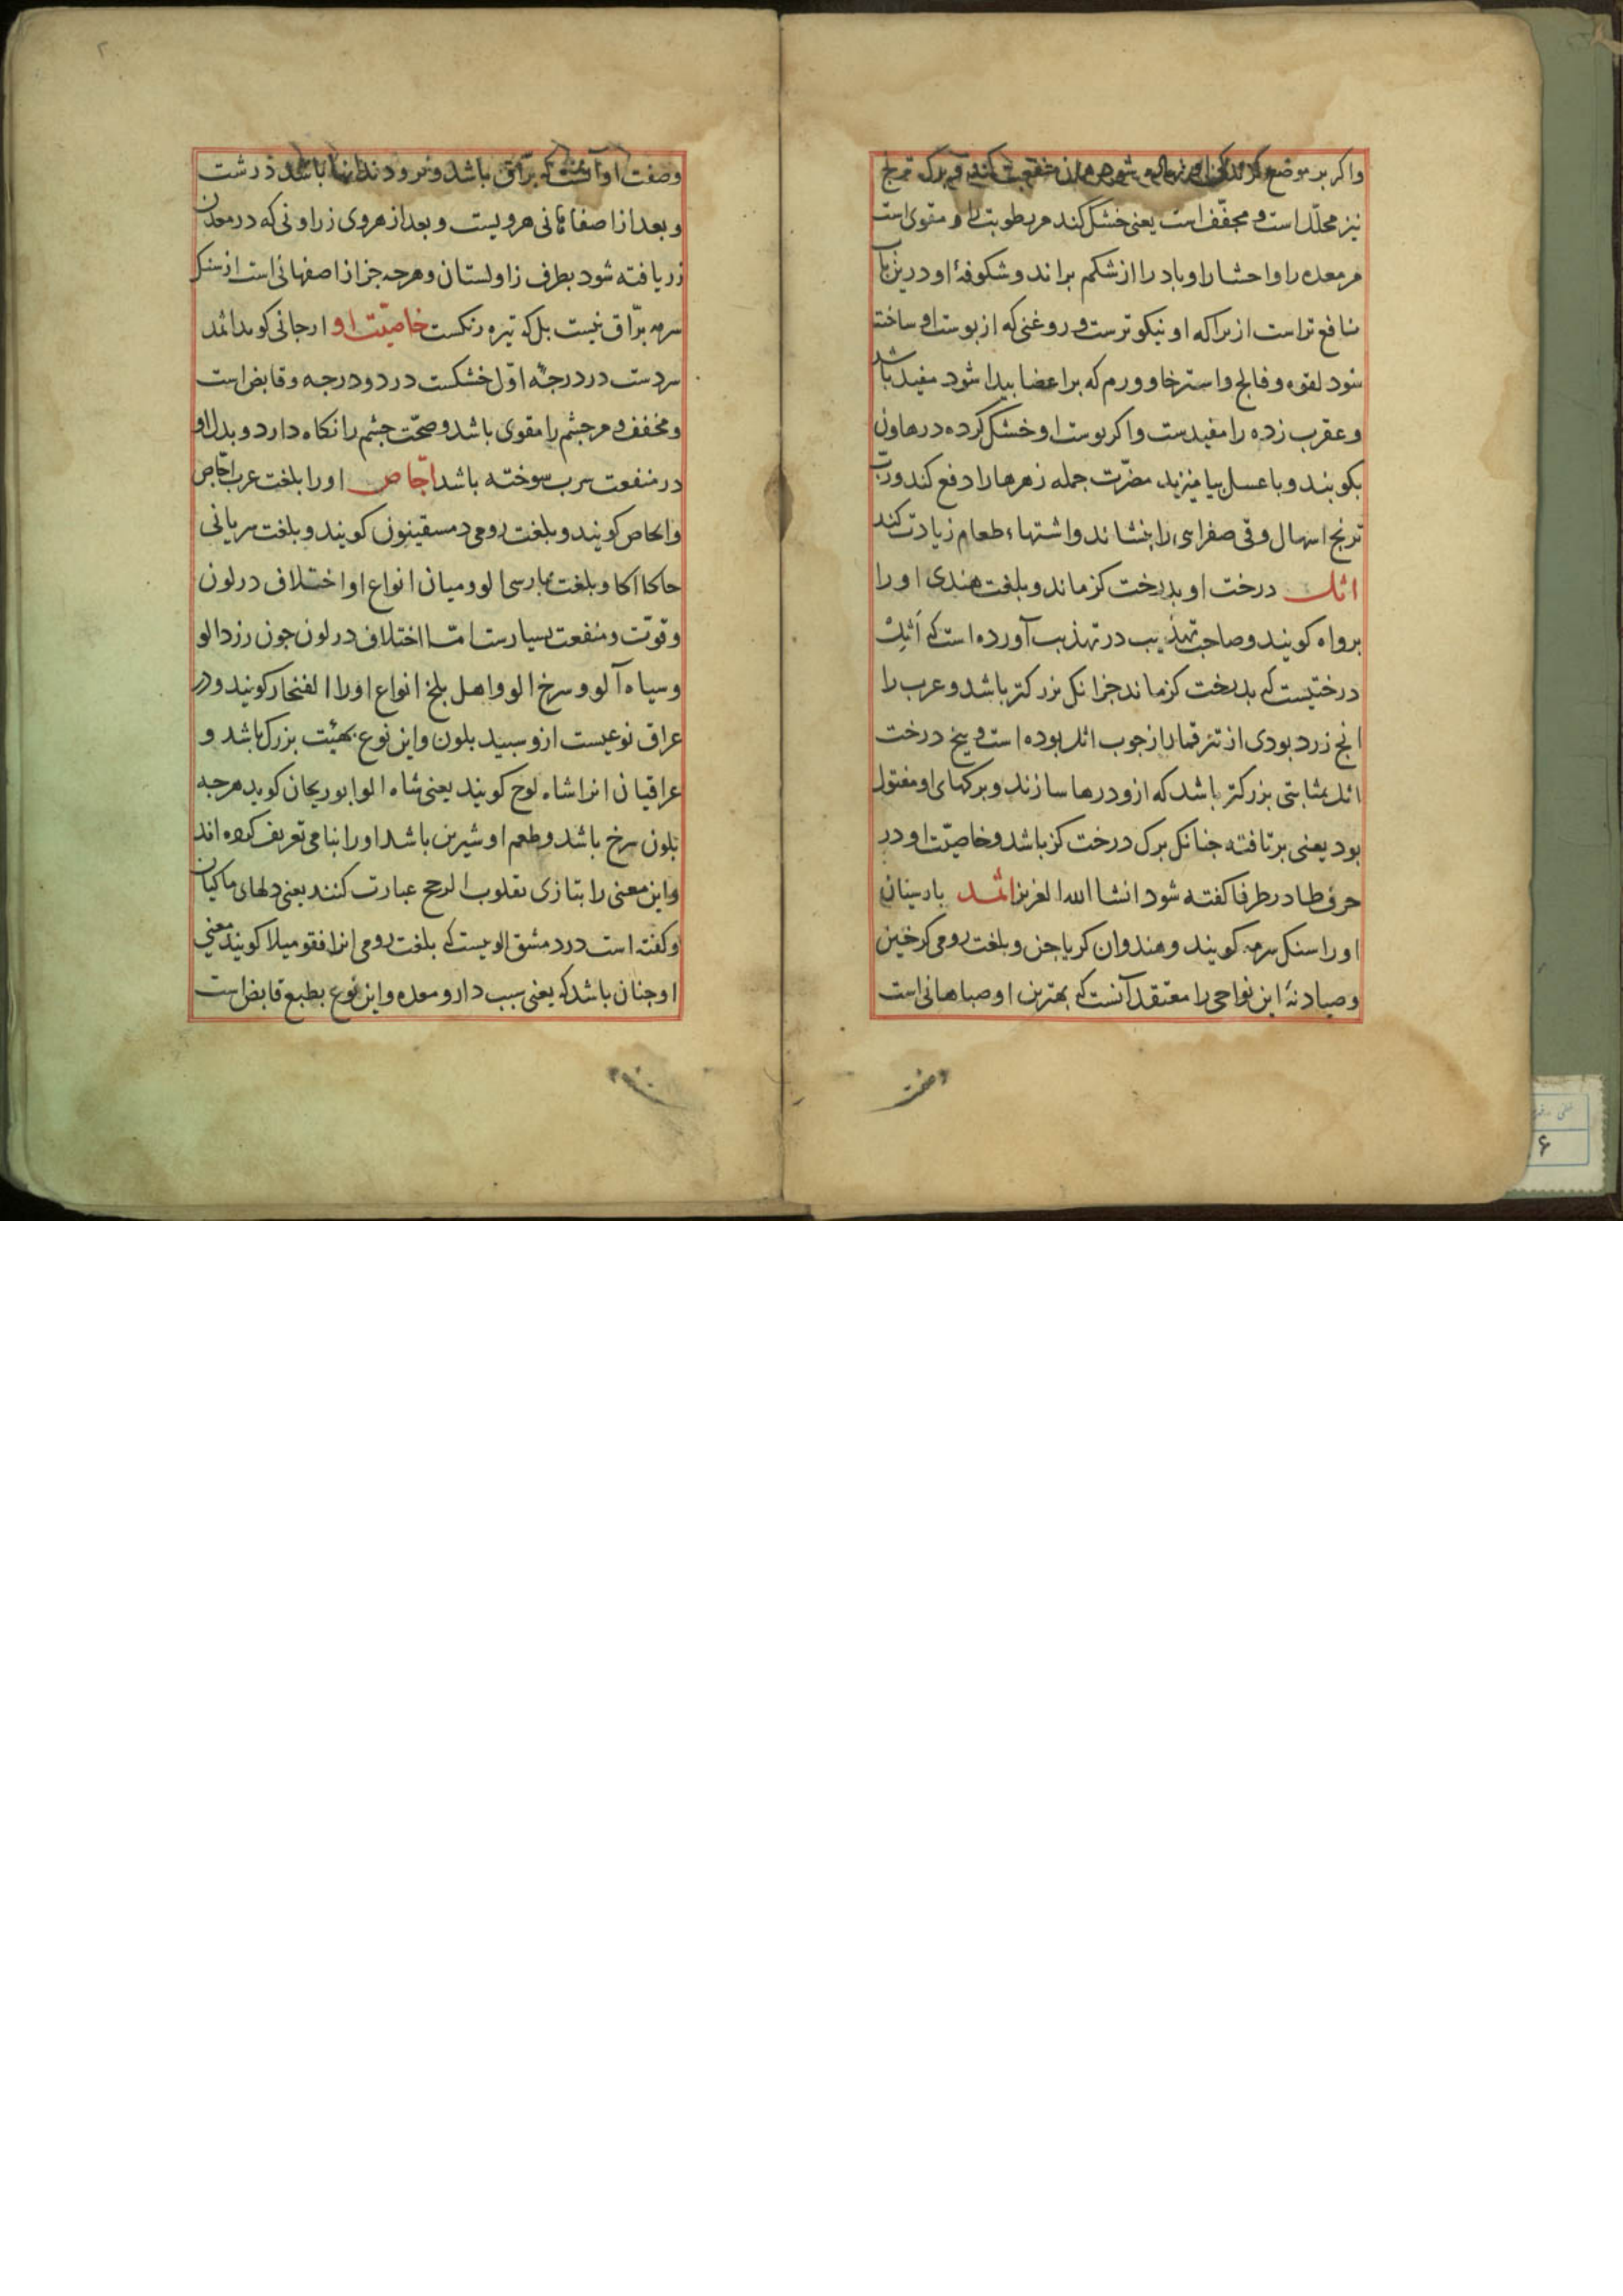 واکر بر موضع کزندکی او نهاده شود همان منفعت کند و برک ترنج
نیز محلّل است و مجفّف است یعنی خشک کند مر رطوبت را و مقوی است
مر معده را و احشا را و باد را از شکم براند و شکوفهٔ او درین باب
نافع تر است از برا که او نیکوترست و روغنی که از پوست او ساخته
شود لقوه و فالج و استرخا و ورم که بر اعضا پیدا شود مفید باشد
و عقرب زده را مفیدست واکر پوست او خشک کرده در هاون
بکوبند و با عسل بیامیزند مضرّت جمله زهرها را دفع کند و ربّ
ترنج اسهال وقی صفرای را بنشاند و اشتهاء طعام زیادت کند
اثل درخت او بدرخت کز ماند و بلغت هندی او را
برواه کویند و صاحب تهذیب در تهذیب آورده است که اَثل
درختیست که بدرخت کز ماند جز انک بزرکتر باشد و عرب را
انج زرد بودی از تنر قمار از جوب اثل بوده است و بیخ درخت
اثل بمثابتی بزرکتر باشد که ازو درها سازند و برکهای او مفتول
بود یعنی برتافته جنانک برک درخت کز باشد و خاصیّت او در
حرف طا در طرفا کفته شود انشا الله العزیز اثمد پارسیان
او را سنک سرمه کویند و هندوان کریاجن و بلغت رومی کرخین
و صیادنهٔ این نواحی را معتقد آنست که بهترین او صباهانی است
وصفت
وصفت او آنست که برّاق باشد و فرود دندانها باشد درشت
و بعد از اصفاهانی هرویست و بعد از هروی زراونی که در معدن
زر یافته شود بطرف زاولستان و هرجه جز از اصفهانی است از سنک
سرمه برّاق نیست بل که تیره رنکست خاصیّت او ارجانی کوید اثمد
سردست در درجهٔ اوّل خشکست در دو درجه و قابض است
و مخفف و مر جشم را مقوی باشد و صحّت جشم را نکاه دارد و بدل او
در منفعت سرب سوخته باشد اجّاص او را بلغت عرب اجّاص
و انجاص کویند و بلغت رومی دمسقینون کویند و بلغت سریانی
حاکا اکا و بلغت پارسی الو و میان انواع او اختلاف در لون
و قوّت و منفعت بسیارست امّا اختلاف در لون جون زرد الو
و سیاه آلو و سرخ الو و اهل بلخ انواع او را الفنخار کویند و در
عراق نوعیست ازو سپید بلون و این نوع بهیئت بزرک باشد و
عراقیان انرا شاه لوج کویند یعنی شاه الو ابو ریحان کوید هرجه
بلون سرخ باشد و طعم او شیرین باشد او را بنامی تعریف کرده اند
و این معنی را بتازی بقلوب الدجج عبارت کنند یعنی دلهای ماکیان
و کفته است در دمشق الویست که بلغت رومی انرا فقومیلا کویند معنی
او جنان باشد که یعنی سیب دارو معده و این نوع بطبع قابض است